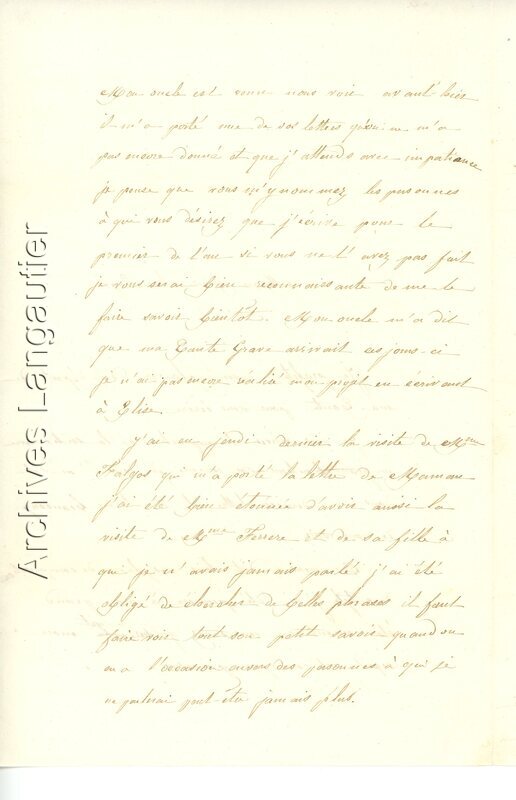 Mon oncle est venu nous voir avant hier
il m'a porté une de vos lettres qu'on ne m'a
pas encore donné et que j'attends avec impatiance
je pense que vous m'y nommez les personnes
à qui vous désirez que j'écrive pour le
premier de l'an si vous ne l'avez pas fait
je vous serai bien reconnaissante de me le
faire savoir bientot. Mon oncle m'a dit
que ma Tante Grave arrivait ces jours-ci
je n'ai pas encore réalisé mon projet en écrivant
à Elise.
J'ai eu jeudi dernier la visite de Mme
Falgos qui m'a porté la lettre de Maman
j'ai été bien étonnée d'avoir aussi la
visite de Mme Ferrere et de sa fille à
qui je n'avais jamais parlé j'ai été
obligé de chercher de belles phrases il faut
faire voir tout son petit savoir quand on
en a l'occasion envers des personnes à qui je
ne parlerai peut-être jamais plus.
Archives Langautier